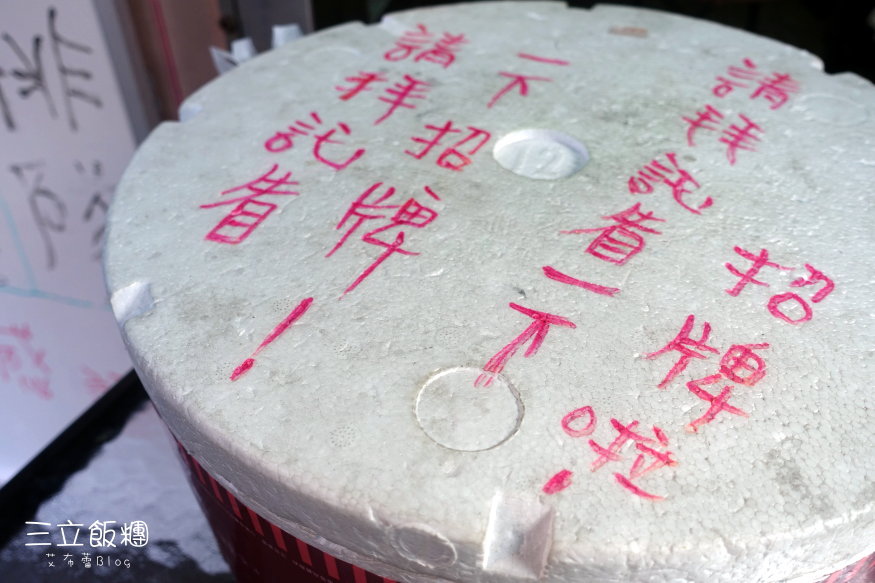 請拜託看
一下招牌！
請拜託看一下
招牌啦！
三立飯糰
艾布蕾Blog